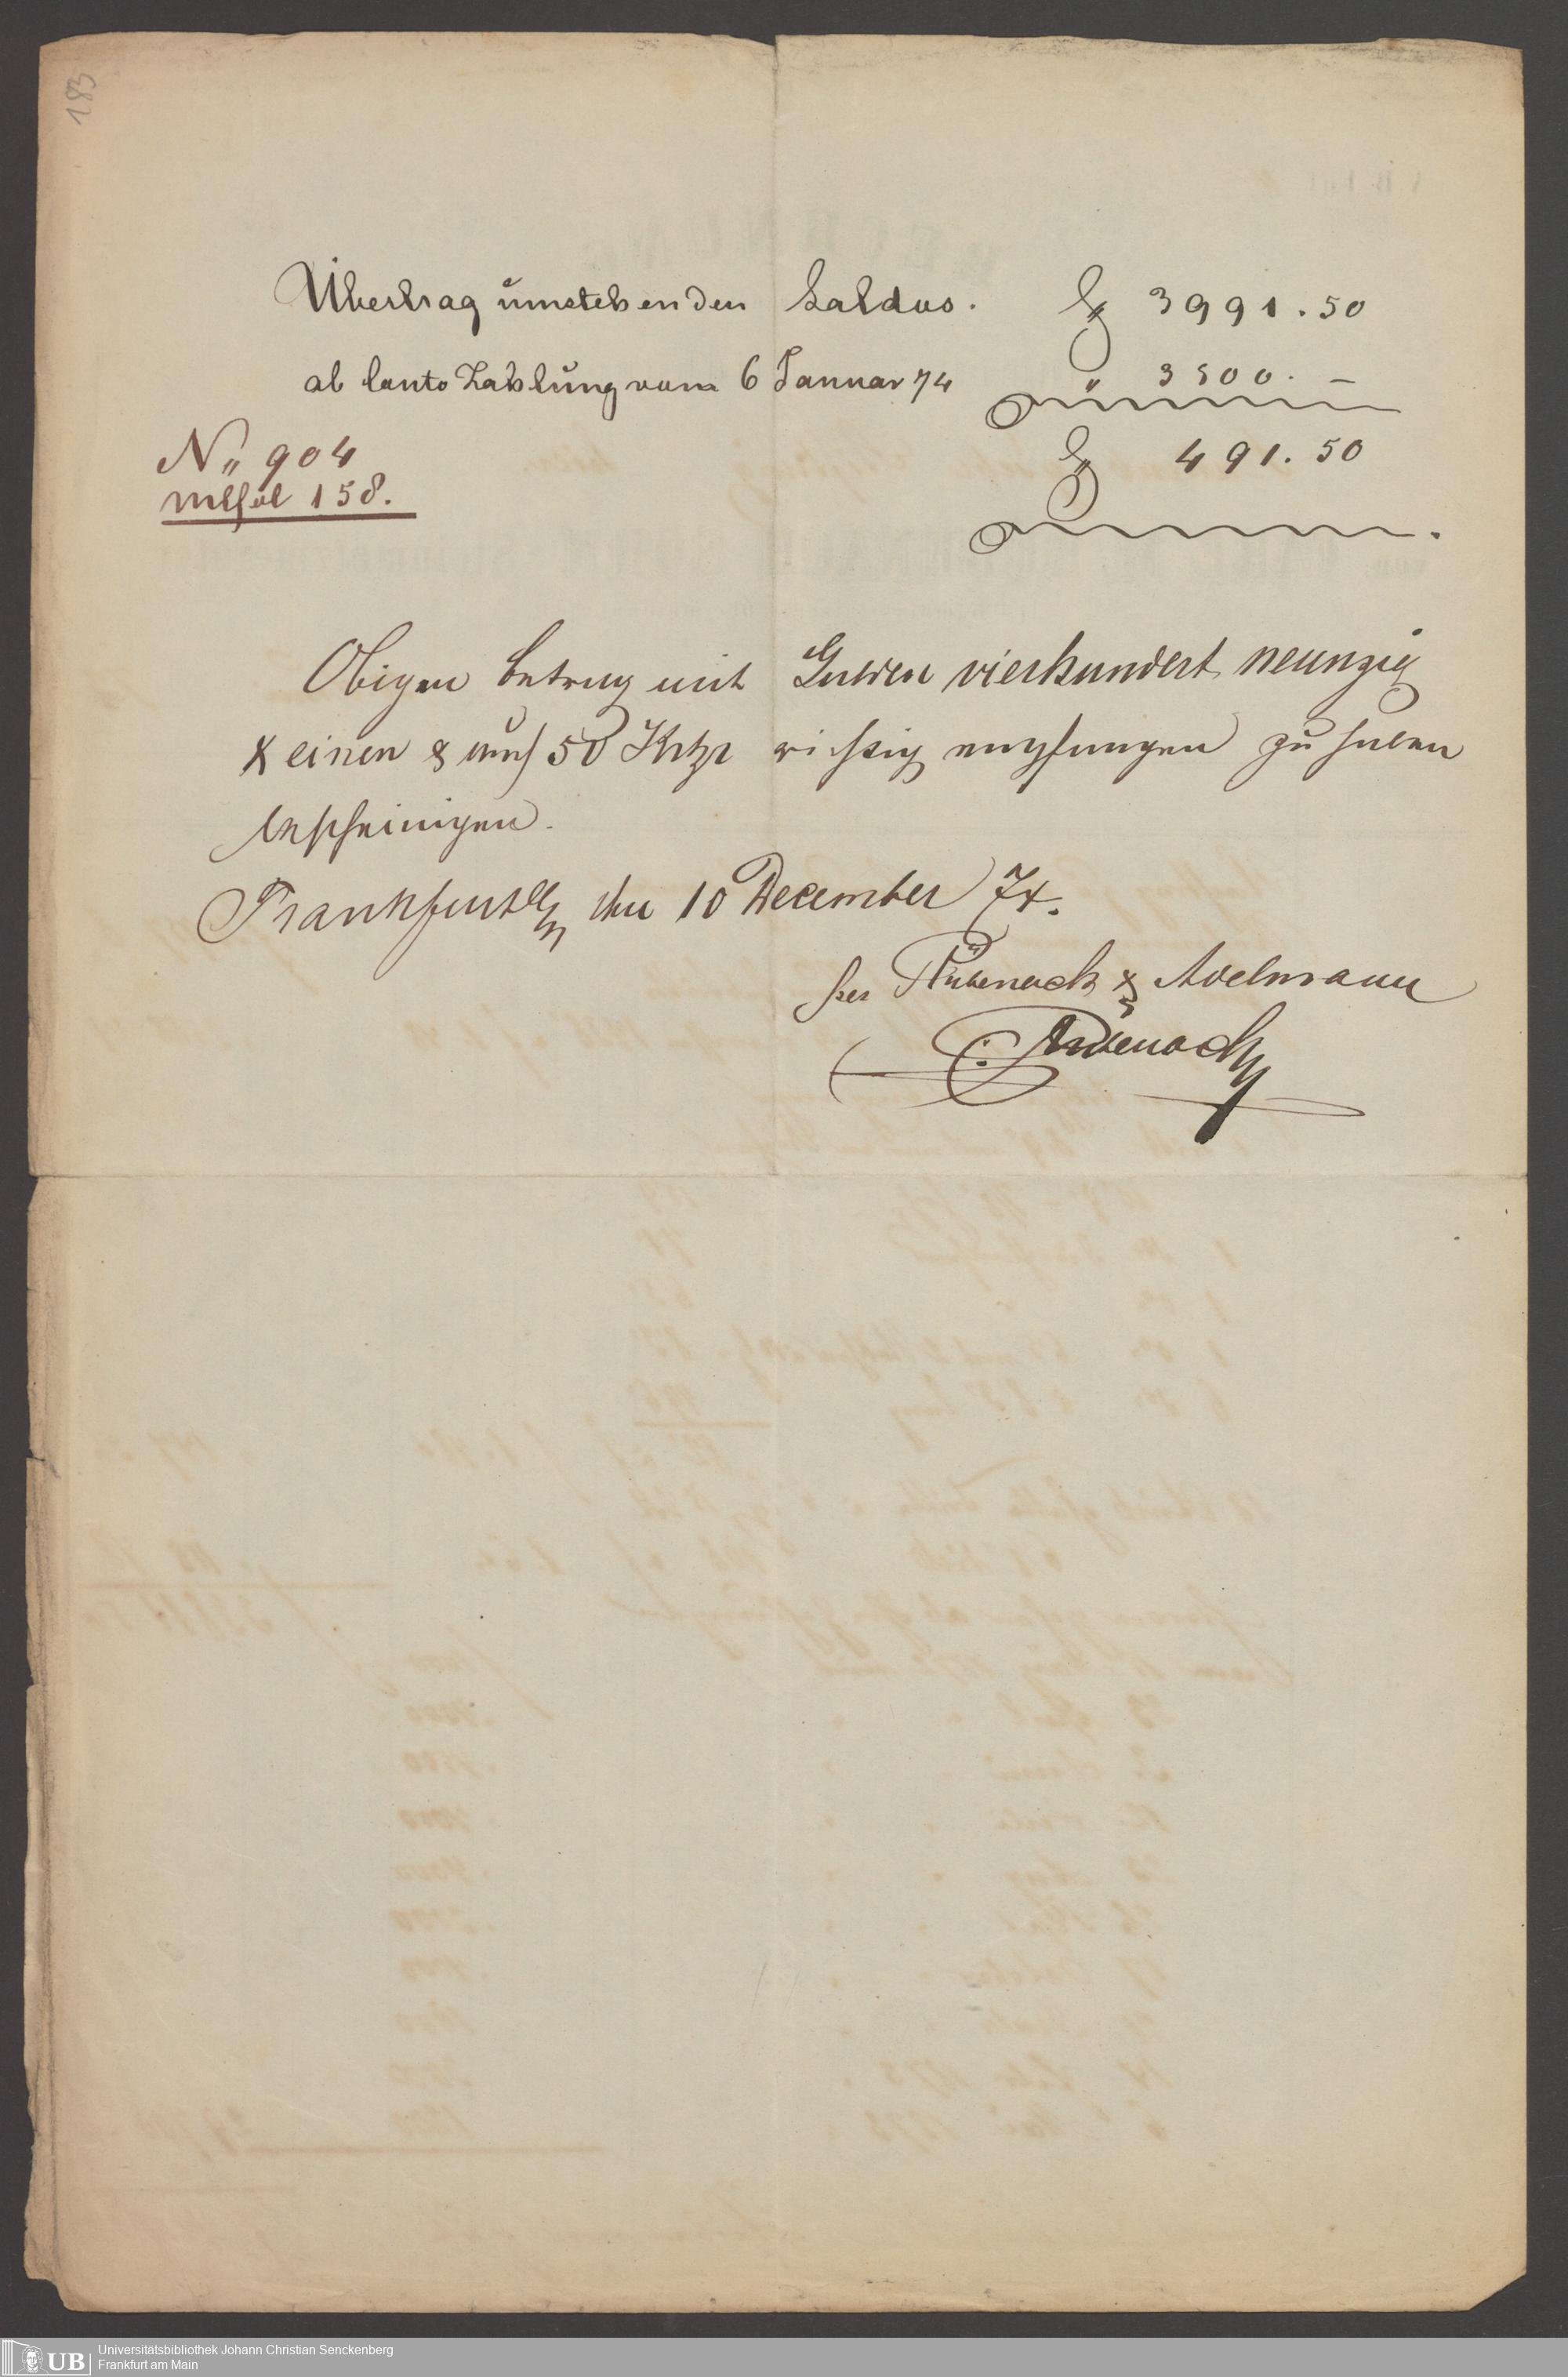 183
Übertrag umstehenden Saldos. fl 3991.50
ab Conto Zahlung vom 6 Januar 74 " 3500. –
fl 491.50
No 904
158.
Obigen Betrag mit Gulden vierhundert neunzig
& einen & auch 50 Krtzr richtig empfangen zu haben
bescheinigen.
Frankfurt a/m den 10 December 74.
per & Adelmann
UB
Universitätsbibliothek Johann Christian Senckenberg
Frankfurt am Main